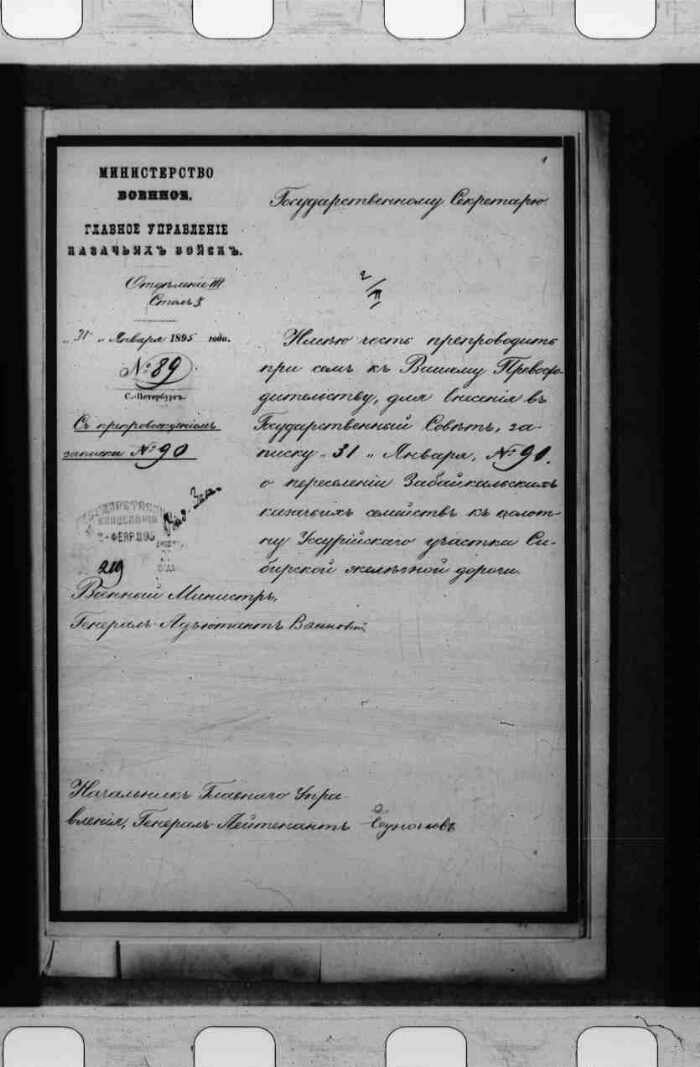 1
МИНИСТЕРСТВО
ВОЕННОЕ.
ГЛАВНОЕ УПРАВЛЕНІЕ
КАЗАЧЬИХЪ ВОЙСКЪ.
Отдѣленіе III
Столъ
„31" Января 1895 года.
№ 89
С.-Петербургъ.
Съ препровожденіемъ
записки № 90
Государственному Секретарю.
2/II
Имѣю честь препроводить
при семъ къ Вашему Превосхо-
дительству, для внесенія въ
Государственный Совѣтъ, за-
писку „31" Января, № 90.
о переселеніи Забайкальскихъ
казачьихъ семействъ къ полот-
ну Уссурійскаго участка Си-
бирской желѣзной дороги.
ГОСУДАРСТВЕН
КАНЦЕЛЯРІЯ
2-ФЕВР.1895
219
Военный Министръ,
Генералъ-Адъютантъ Ванновскій
Начальникъ Главнаго Упра-
вленія, Генералъ-Лейтенантъ